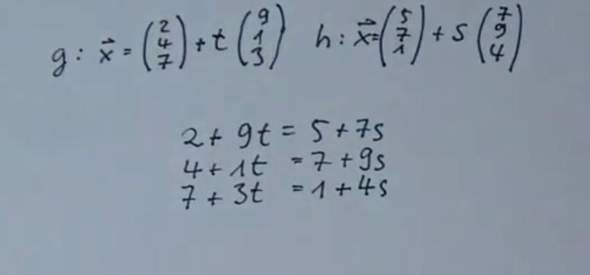 g: x⃗ = (2 4 7) + t (9 1 3) h: x⃗ = (5 7 1) + s (7 9 4)
2 + 9t = 5 + 7s
4 + 1t = 7 + 9s
7 + 3t = 1 + 4s